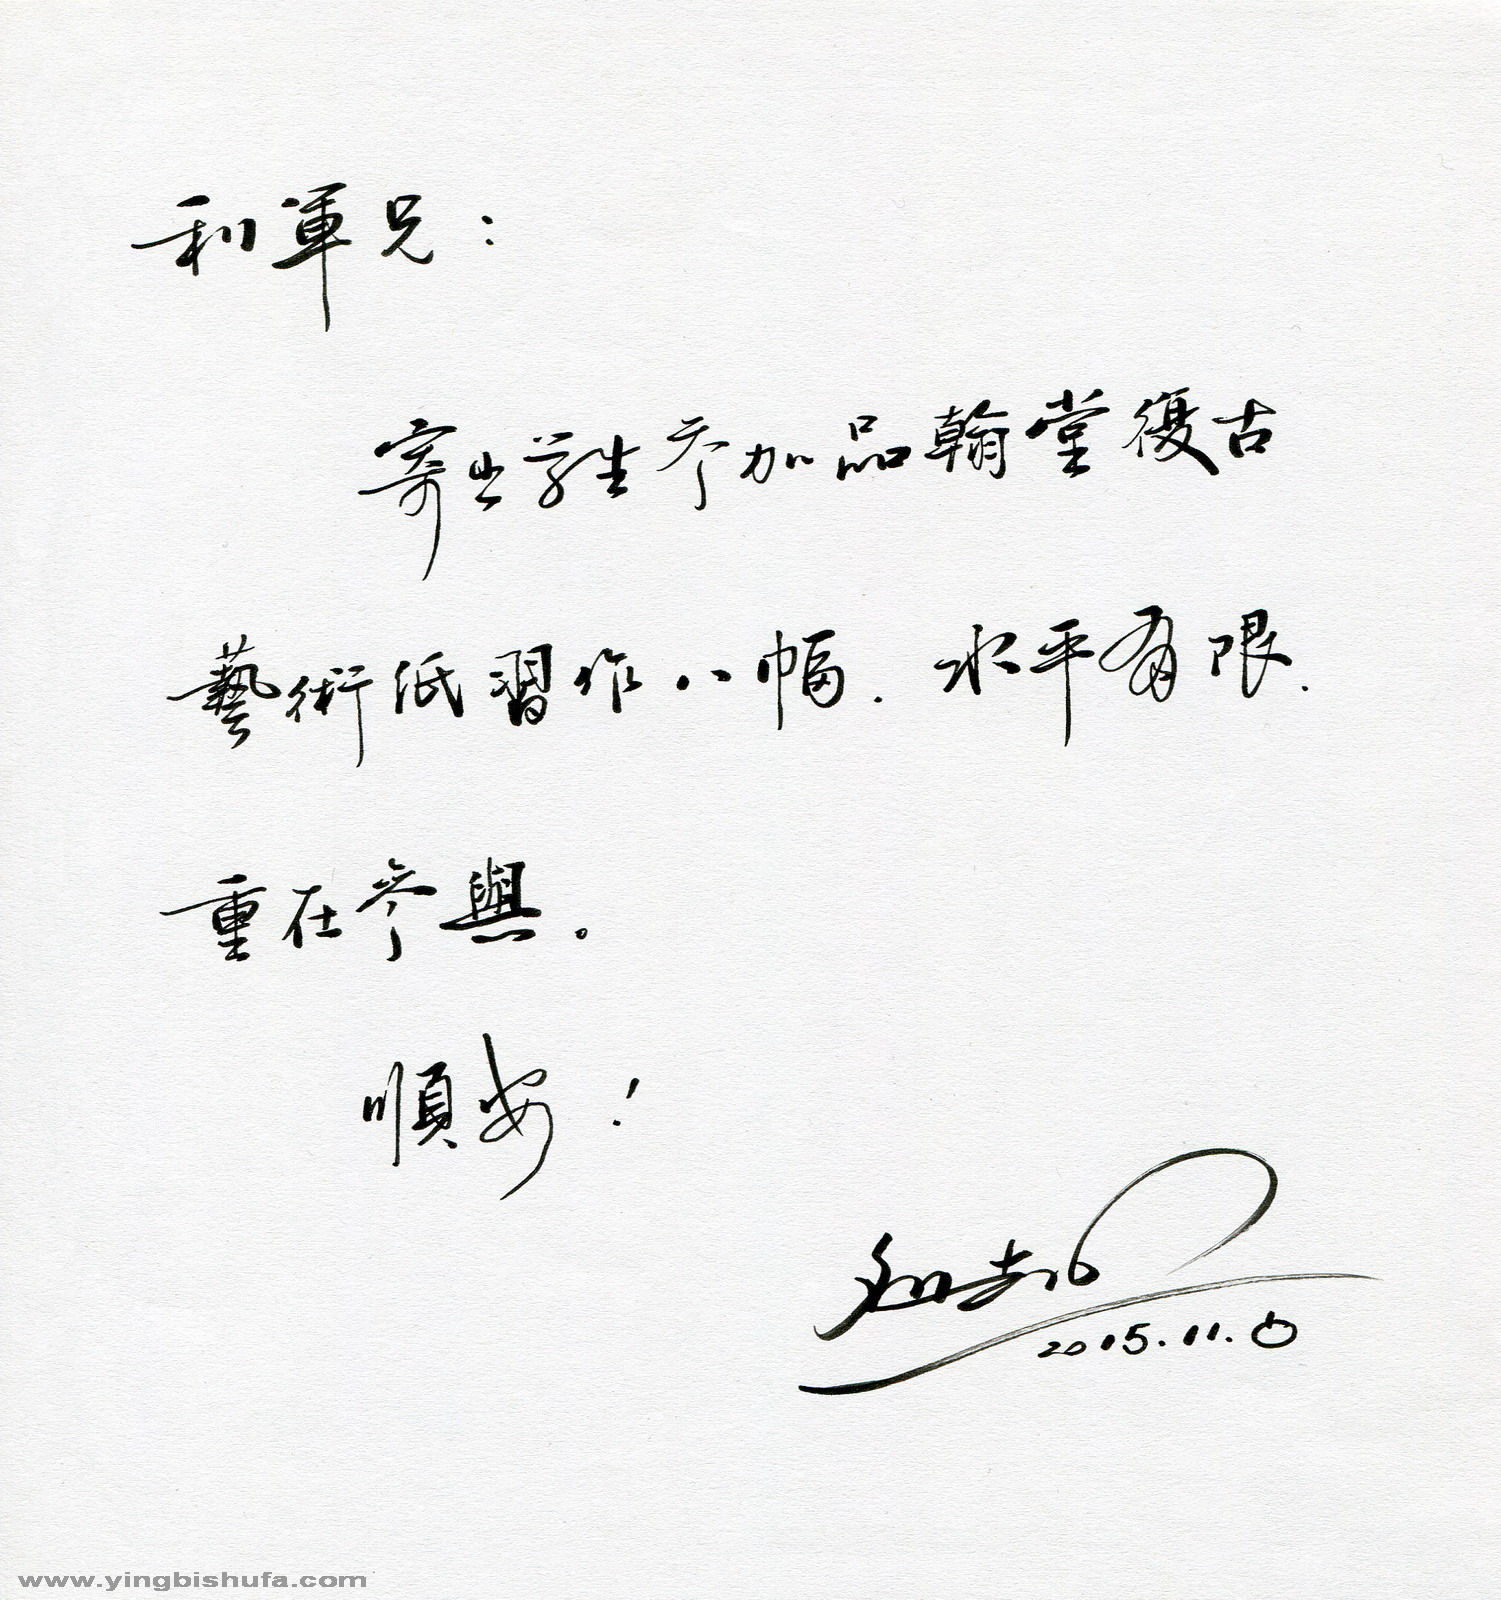 利軍兄：
寄上学生参加品翰堂復古
藝術纸習作八幅．水平有限．
重在參與。
順安！
2015.11.
www.yingbishufa.com